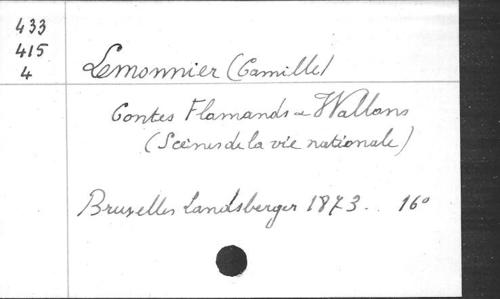 433
415
4
Lemonnier (Camille)
Contes Flamands et Wallons
(Scènes de la vie nationale)
Bruxelles Landsberger 1873. 16°